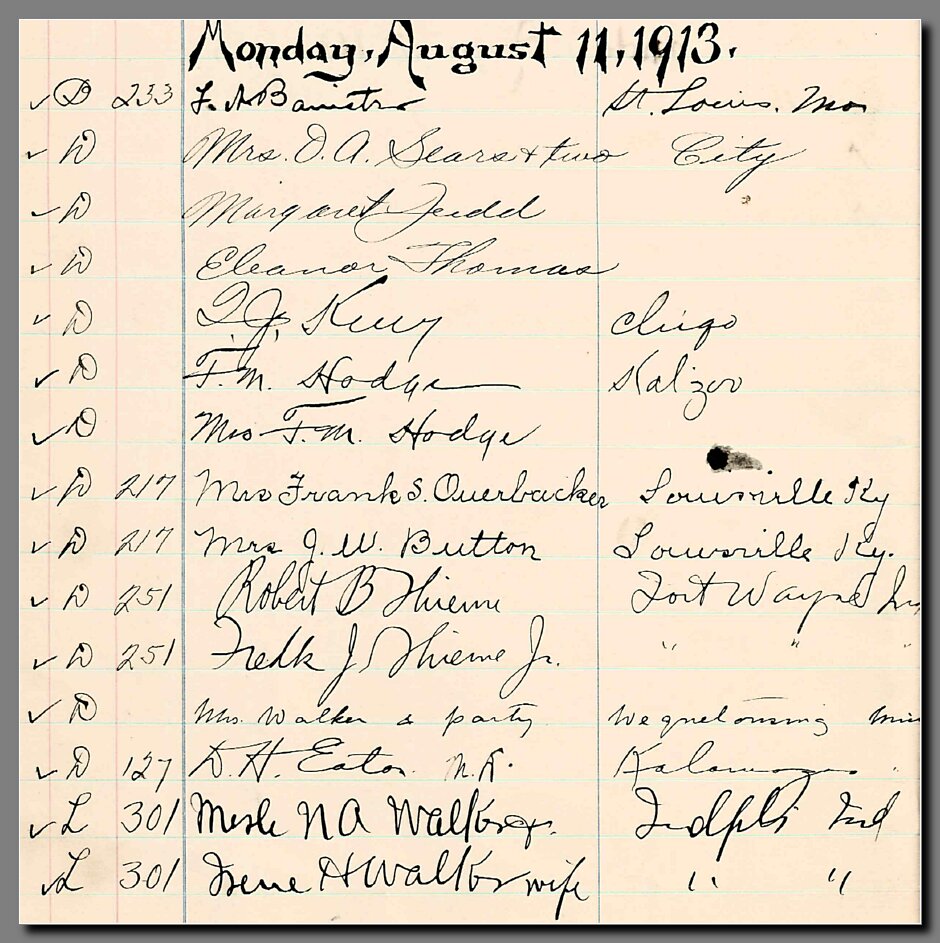 Monday, August 11, 1913.
✓ D 233 F. A. Banister St. Louis. Mo
✓ D Mrs. O. A. Sears & two City
✓ D Margaret Judd
✓ D Eleanor Thomas
✓ D J. Kelly Chigo
✓ D F. M. Hodge Kalzoo
✓ D Mrs F. M. Hodge
✓ D 217 Mrs Frank S. Ouerbacker Louisville Ky
✓ D 217 Mrs J. W. Button Louisville Ky.
✓ D 251 Robert B Thieme Fort Wayne
✓ D 251 Fredk J Thieme Jr. " " "
✓ D Mrs. Walker & party Wequetonsing
✓ D 127 D. H. Eaton Kalamazoo "
✓ L 301 N A Walker Indpls Ind
✓ L 301 Irene H Walker wife " "